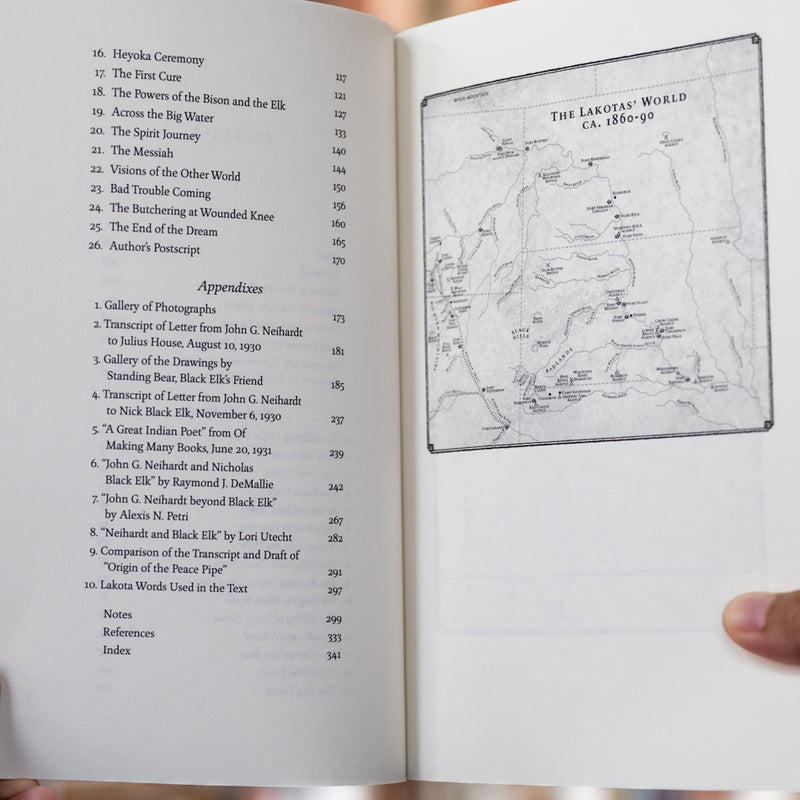 16. Heyoka Ceremony 117
17. The First Cure 121
18. The Powers of the Bison and the Elk 127
19. Across the Big Water 133
20. The Spirit Journey 140
21. The Messiah 144
22. Visions of the Other World 150
23. Bad Trouble Coming 156
24. The Butchering at Wounded Knee 160
25. The End of the Dream 165
26. Author's Postscript 170
Appendixes
1. Gallery of Photographs 173
2. Transcript of Letter from John G. Neihardt
to Julius House, August 10, 1930 181
3. Gallery of the Drawings by
Standing Bear, Black Elk's Friend 185
4. Transcript of Letter from John G. Neihardt
to Nick Black Elk, November 6, 1930 237
5. "A Great Indian Poet" from Of
Making Many Books, June 20, 1931 239
6. "John G. Neihardt and Nicholas
Black Elk" by Raymond J. DeMallie 242
7. "John G. Neihardt beyond Black Elk"
by Alexis N. Petri 267
8. "Neihardt and Black Elk" by Lori Utecht 282
9. Comparison of the Transcript and Draft of
"Origin of the Peace Pipe" 291
10. Lakota Words Used in the Text 297
Notes 299
References 333
Index 341
The Lakotas' World
ca. 1860-90
Wood Mountain
Fort Buford
Fort Berthold
Devil's Lake
Agency
Killdeer
Mountain
Battle
Bismarck
Fort Abraham
Lincoln
Fort Rice
Standing Rock
Agency
Fort Yates
Slim Buttes
Battle
Cheyenne
Agency
Fort Sully
Black
Hills
Badlands
Crow Creek
Agency
Wounded
Knee
Massacre
Fort Laramie